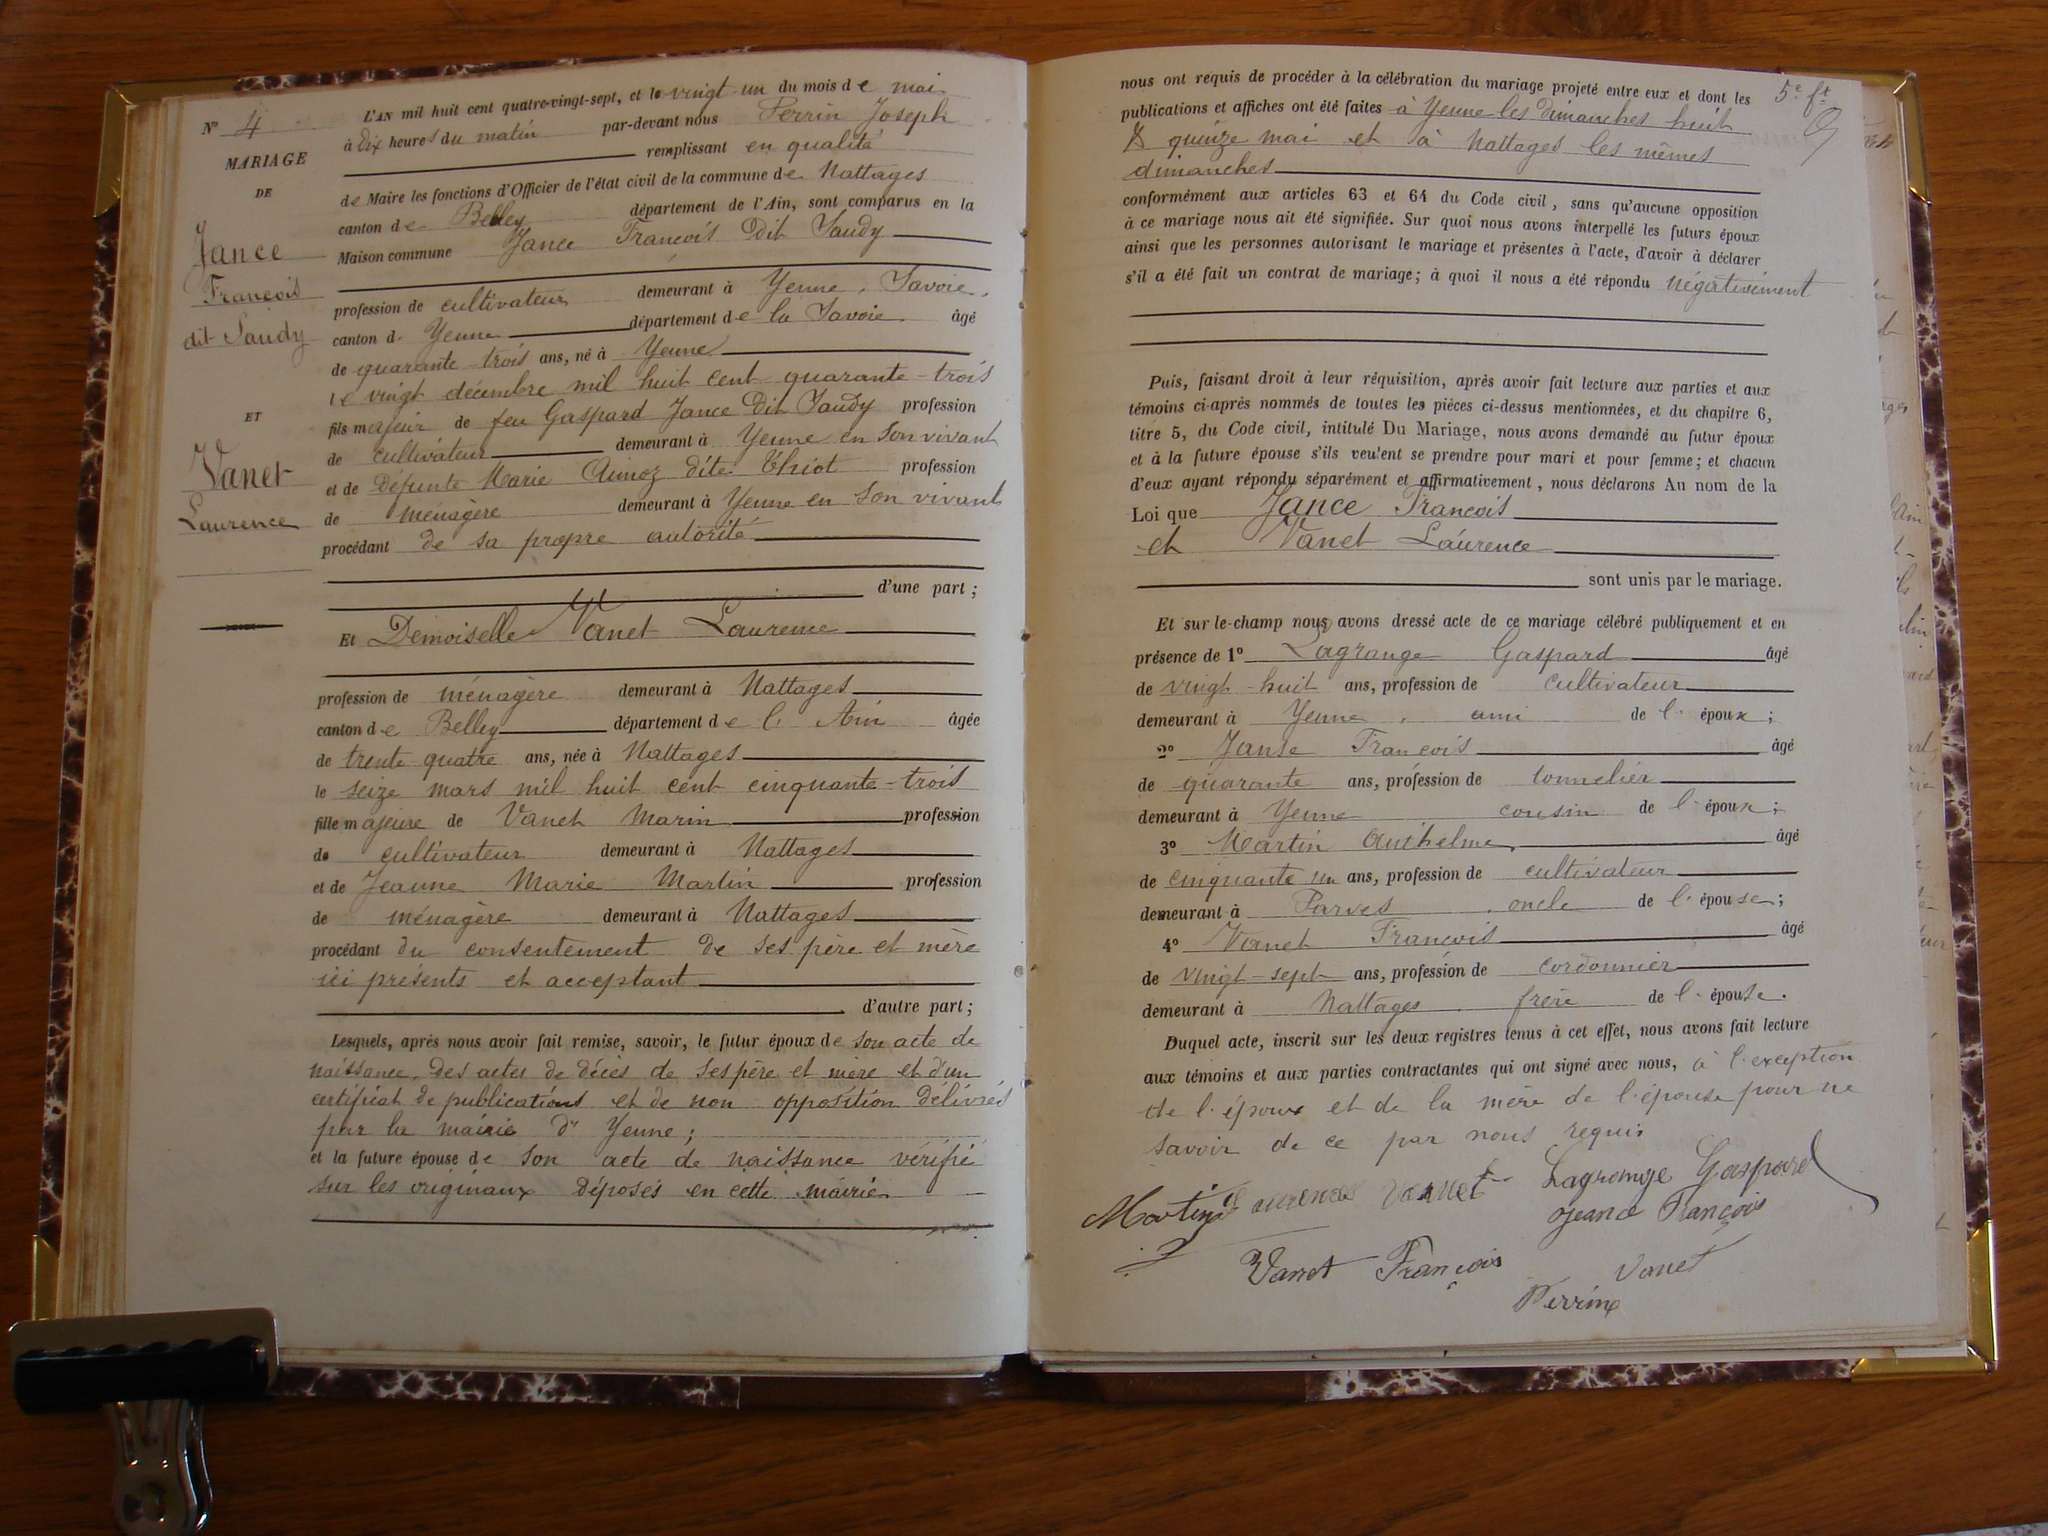 N° 4
MARIAGE
DE
Jance
François
dit Saudy
ET
Vanet
Laurence
L'AN mil huit cent quatre-vingt-sept, et le vingt-un du mois de mai
à dix heures du matin par-devant nous Perrin Joseph
remplissant en qualité
de Maire les fonctions d'Officier de l'état civil de la commune de Nattages
canton de Belley département de l'Ain, sont comparus en la
Maison commune Jance François Dit Saudy
profession de cultivateur demeurant à Yenne, Savoie,
canton d. Yenne département de la Savoie. âgé
de quarante-trois ans, né à Yenne
le vingt décembre mil huit cent quarante-trois
fils majeur de feu Gaspard Jance Dit Saudy profession
de cultivateur demeurant à Yenne en son vivant
et de Défunte Marie Aimoz dite Thiot profession
de ménagère demeurant à Yenne en son vivant
procédant de sa propre autorité
d'une part ;
Et Demoiselle Vanet Laurence
profession de ménagère demeurant à Nattages
canton de Belley département de l'Ain âgée
de trente-quatre ans, née à Nattages
le seize mars mil huit cent cinquante-trois
fille majeure de Vanet Marin profession
de cultivateur demeurant à Nattages
et de Jeanne Marie Martin profession
de ménagère demeurant à Nattages
procédant du consentement de ses père et mère
ici présents et acceptant
d'autre part ;
Lesquels, après nous avoir fait remise, savoir, le futur époux de son acte de
naissance, des actes de décès de ses père et mère et d'un
certificat de publications et de non opposition délivrés
par la mairie de Yenne ;
et la future épouse de son acte de naissance vérifié
sur les originaux déposés en cette mairie
nous ont requis de procéder à la célébration du mariage projeté entre eux et dont les
publications et affiches ont été faites à Yenne les dimanches huit
& quinze mai et à Nattages les mêmes
dimanches
conformément aux articles 63 et 64 du Code civil, sans qu'aucune opposition
à ce mariage nous ait été signifiée. Sur quoi nous avons interpellé les futurs époux
ainsi que les personnes autorisant le mariage et présentes à l'acte, d'avoir à déclarer
s'il a été fait un contrat de mariage; à quoi il nous a été répondu négativement
5e ft
Puis, faisant droit à leur réquisition, après avoir fait lecture aux parties et aux
témoins ci-après nommés de toutes les pièces ci-dessus mentionnées, et du chapitre 6,
titre 5, du Code civil, intitulé Du Mariage, nous avons demandé au futur époux
et à la future épouse s'ils veulent se prendre pour mari et pour femme; et chacun
d'eux ayant répondu séparément et affirmativement, nous déclarons Au nom de la
Loi que Jance François
et Vanet Laurence
sont unis par le mariage.
Et sur-le-champ nous avons dressé acte de ce mariage célébré publiquement et en
présence de 1° Lagrange Gaspard âgé
de vingt-huit ans, profession de cultivateur
demeurant à Yenne, ami de l'époux ;
2° Janse François âgé
de quarante ans, profession de tonnelier
demeurant à Yenne cousin de l'époux ;
3° Martin Anthelme, âgé
de cinquante un ans, profession de cultivateur
demeurant à Parves, oncle de l'épouse ;
4° Vanet François âgé
de vingt-sept ans, profession de cordonnier
demeurant à Nattages, frère de l'épouse.
Duquel acte, inscrit sur les deux registres tenus à cet effet, nous avons fait lecture
aux témoins et aux parties contractantes qui ont signé avec nous, à l'exception
de l'époux et de la mère de l'épouse pour ne
savoir de ce par nous requis
Martin Laurence Vanet Lagrange Gaspard
Jeance François
Vanet François Vanet
Perrin